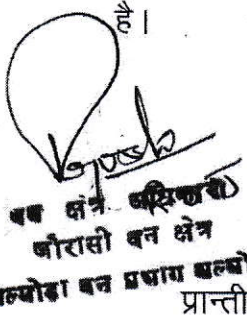 है।
वन क्षेत्र अधिकारी
जौरासी वन क्षेत्र
ल्मोड़ा वन प्रभाग अल्मो
प्रान्ती